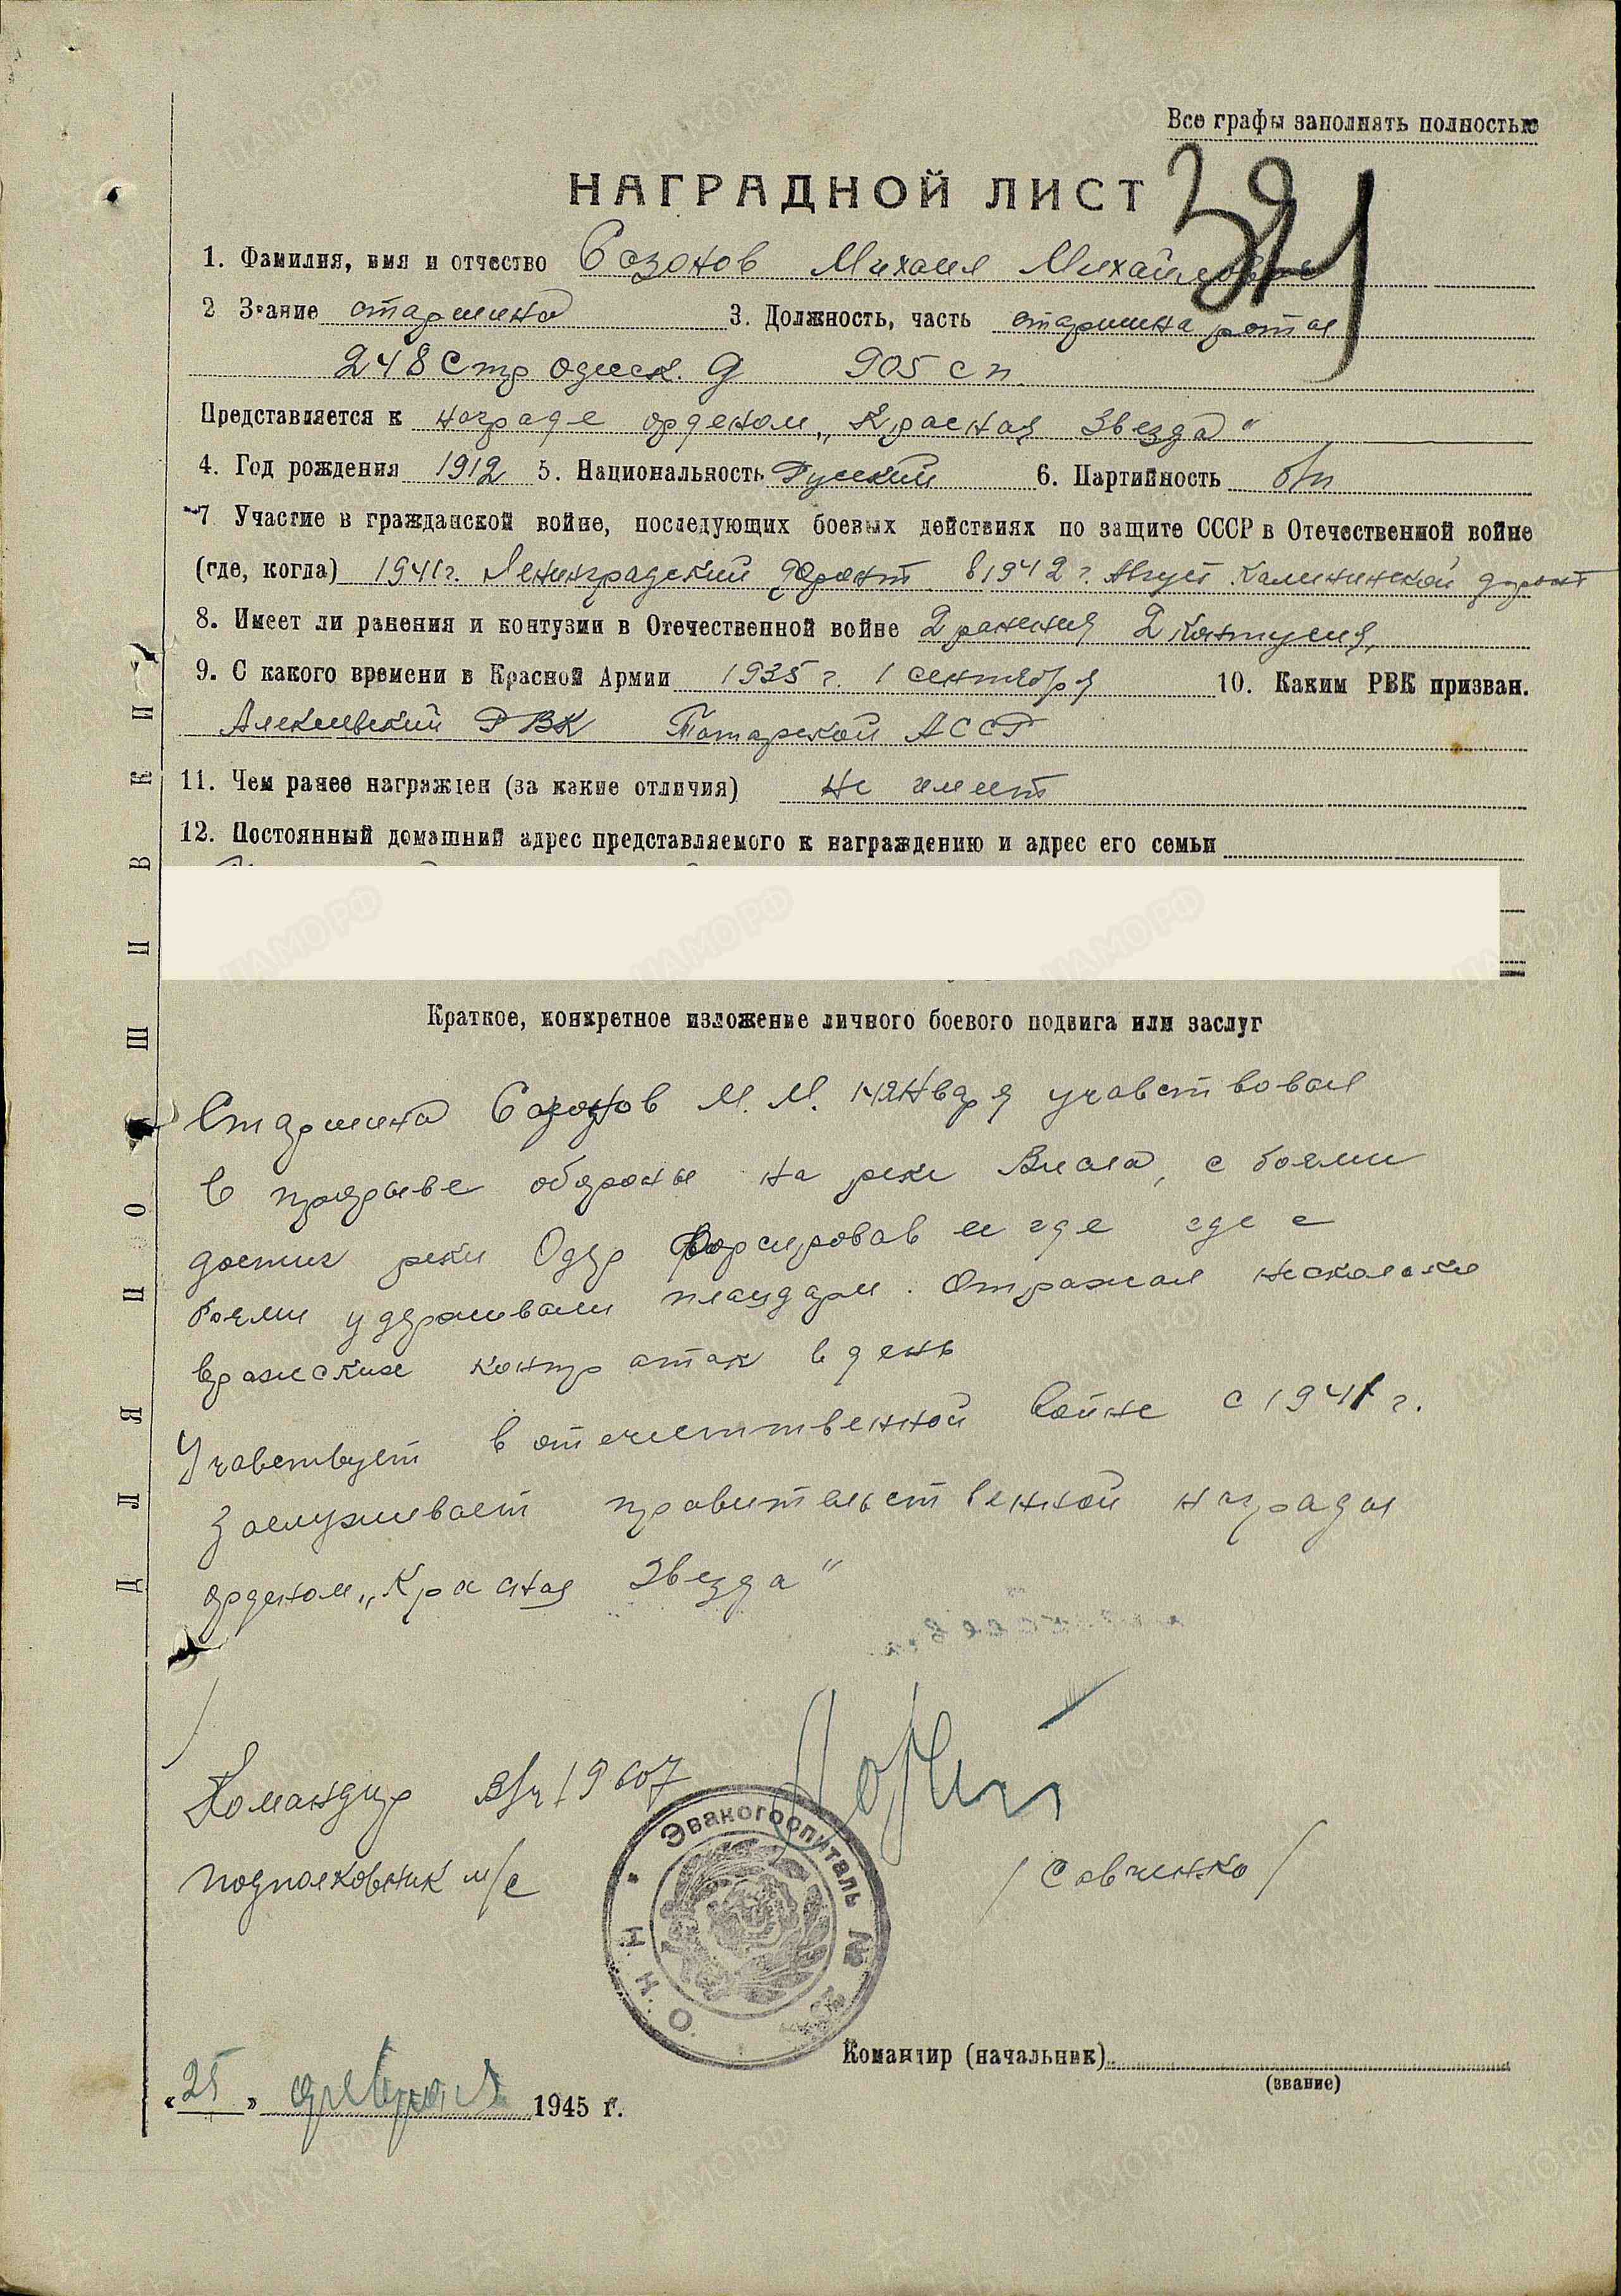 Все графы заполнять полностью
НАГРАДНОЙ ЛИСТ
1. Фамилия, имя и отчество Сазонов Михаил Михайлович
2 Звание старшина 3. Должность, часть старшина роты
248 Стр одеск. д 905 сп.
Представляется к награде орденом „Красная Звезда"
4. Год рождения 1912 5. Национальность Русский 6. Партийность б/п
7 Участие в гражданской войне, последующих боевых действиях по защите СССР в Отечественной войне
(где, когда) 1941 г. Ленинградский фронт в 1942 г. Август Калининской фронт
8. Имеет ли ранения и контузии в Отечественной войне 2 ранения 2 контузия,
9. С какого времени в Красной Армии 1935 г. 1 сентября 10. Каким РВК призван.
Алексеевский РВК Татарской АССР
11. Чем ранее награжден (за какие отличия) Не имеет
12. Постоянный домашний адрес представляемого к награждению и адрес его семьи
Краткое, конкретное изложение личного боевого подвига или заслуг
Старшина Сазонов М. М. 14 января учавствовал
в прорыве обороны на реки Висла, с боями
достиг реки Одер форсировав ее где где с
боями удерживали плацдарм. Отражая несколько
вражеских контр атак в день
Учавствует в отечественной войне с 1941 г.
Заслуживает правительственной награды
орденом „Красная Звезда"
Командир в/ч 19607
подполковник м/с /Савченко/
Эвакогоспиталь №
Н.К.О.
Командир (начальник)
(звание)
«25» февраля 1945 г.
ДЛЯ ПОДШИВКИ
ЦАМО.РФ